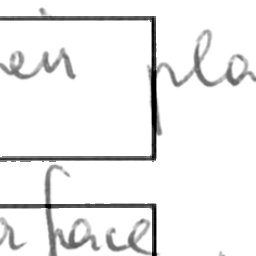 eir pla
r face